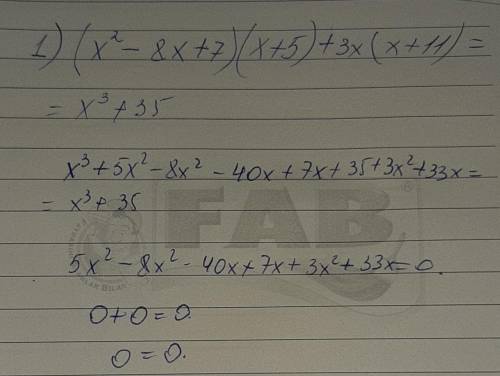 1) (x² - 8x + 7)(x + 5) + 3x(x + 11) =
= x³ + 35
x³ + 5x² - 8x² - 40x + 7x + 35 + 3x² + 33x =
= x³ + 35
FAB®
5x² - 8x² - 40x + 7x + 3x² + 33x = 0.
0 + 0 = 0.
0 = 0.